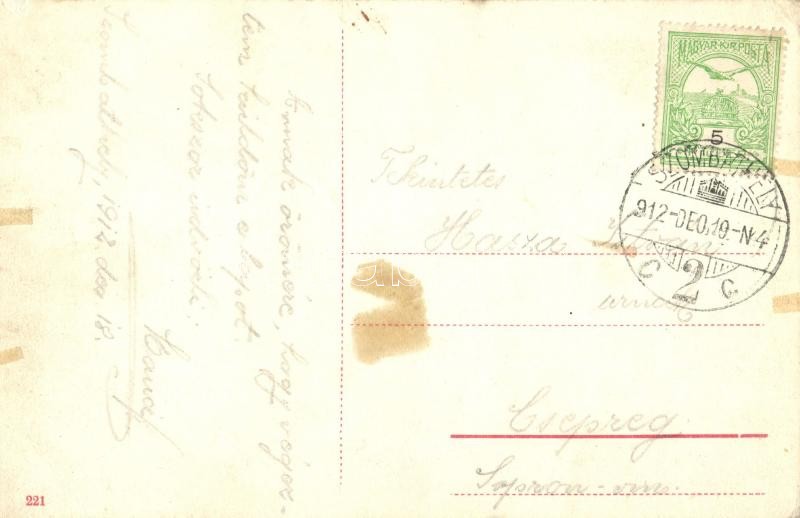 Annak örömére, hogy végez-
tem küldöm e lapot.
Sokszor üdvözli:
Szombathely, 1912 dec 18.
MAGYAR·KIR·POSTA
5
SZOMBATHELY
912-DEC.19-N4
C 2 C
Tekintetes
Hasza
úrnak
Csepreg
Sopron-vm.
221